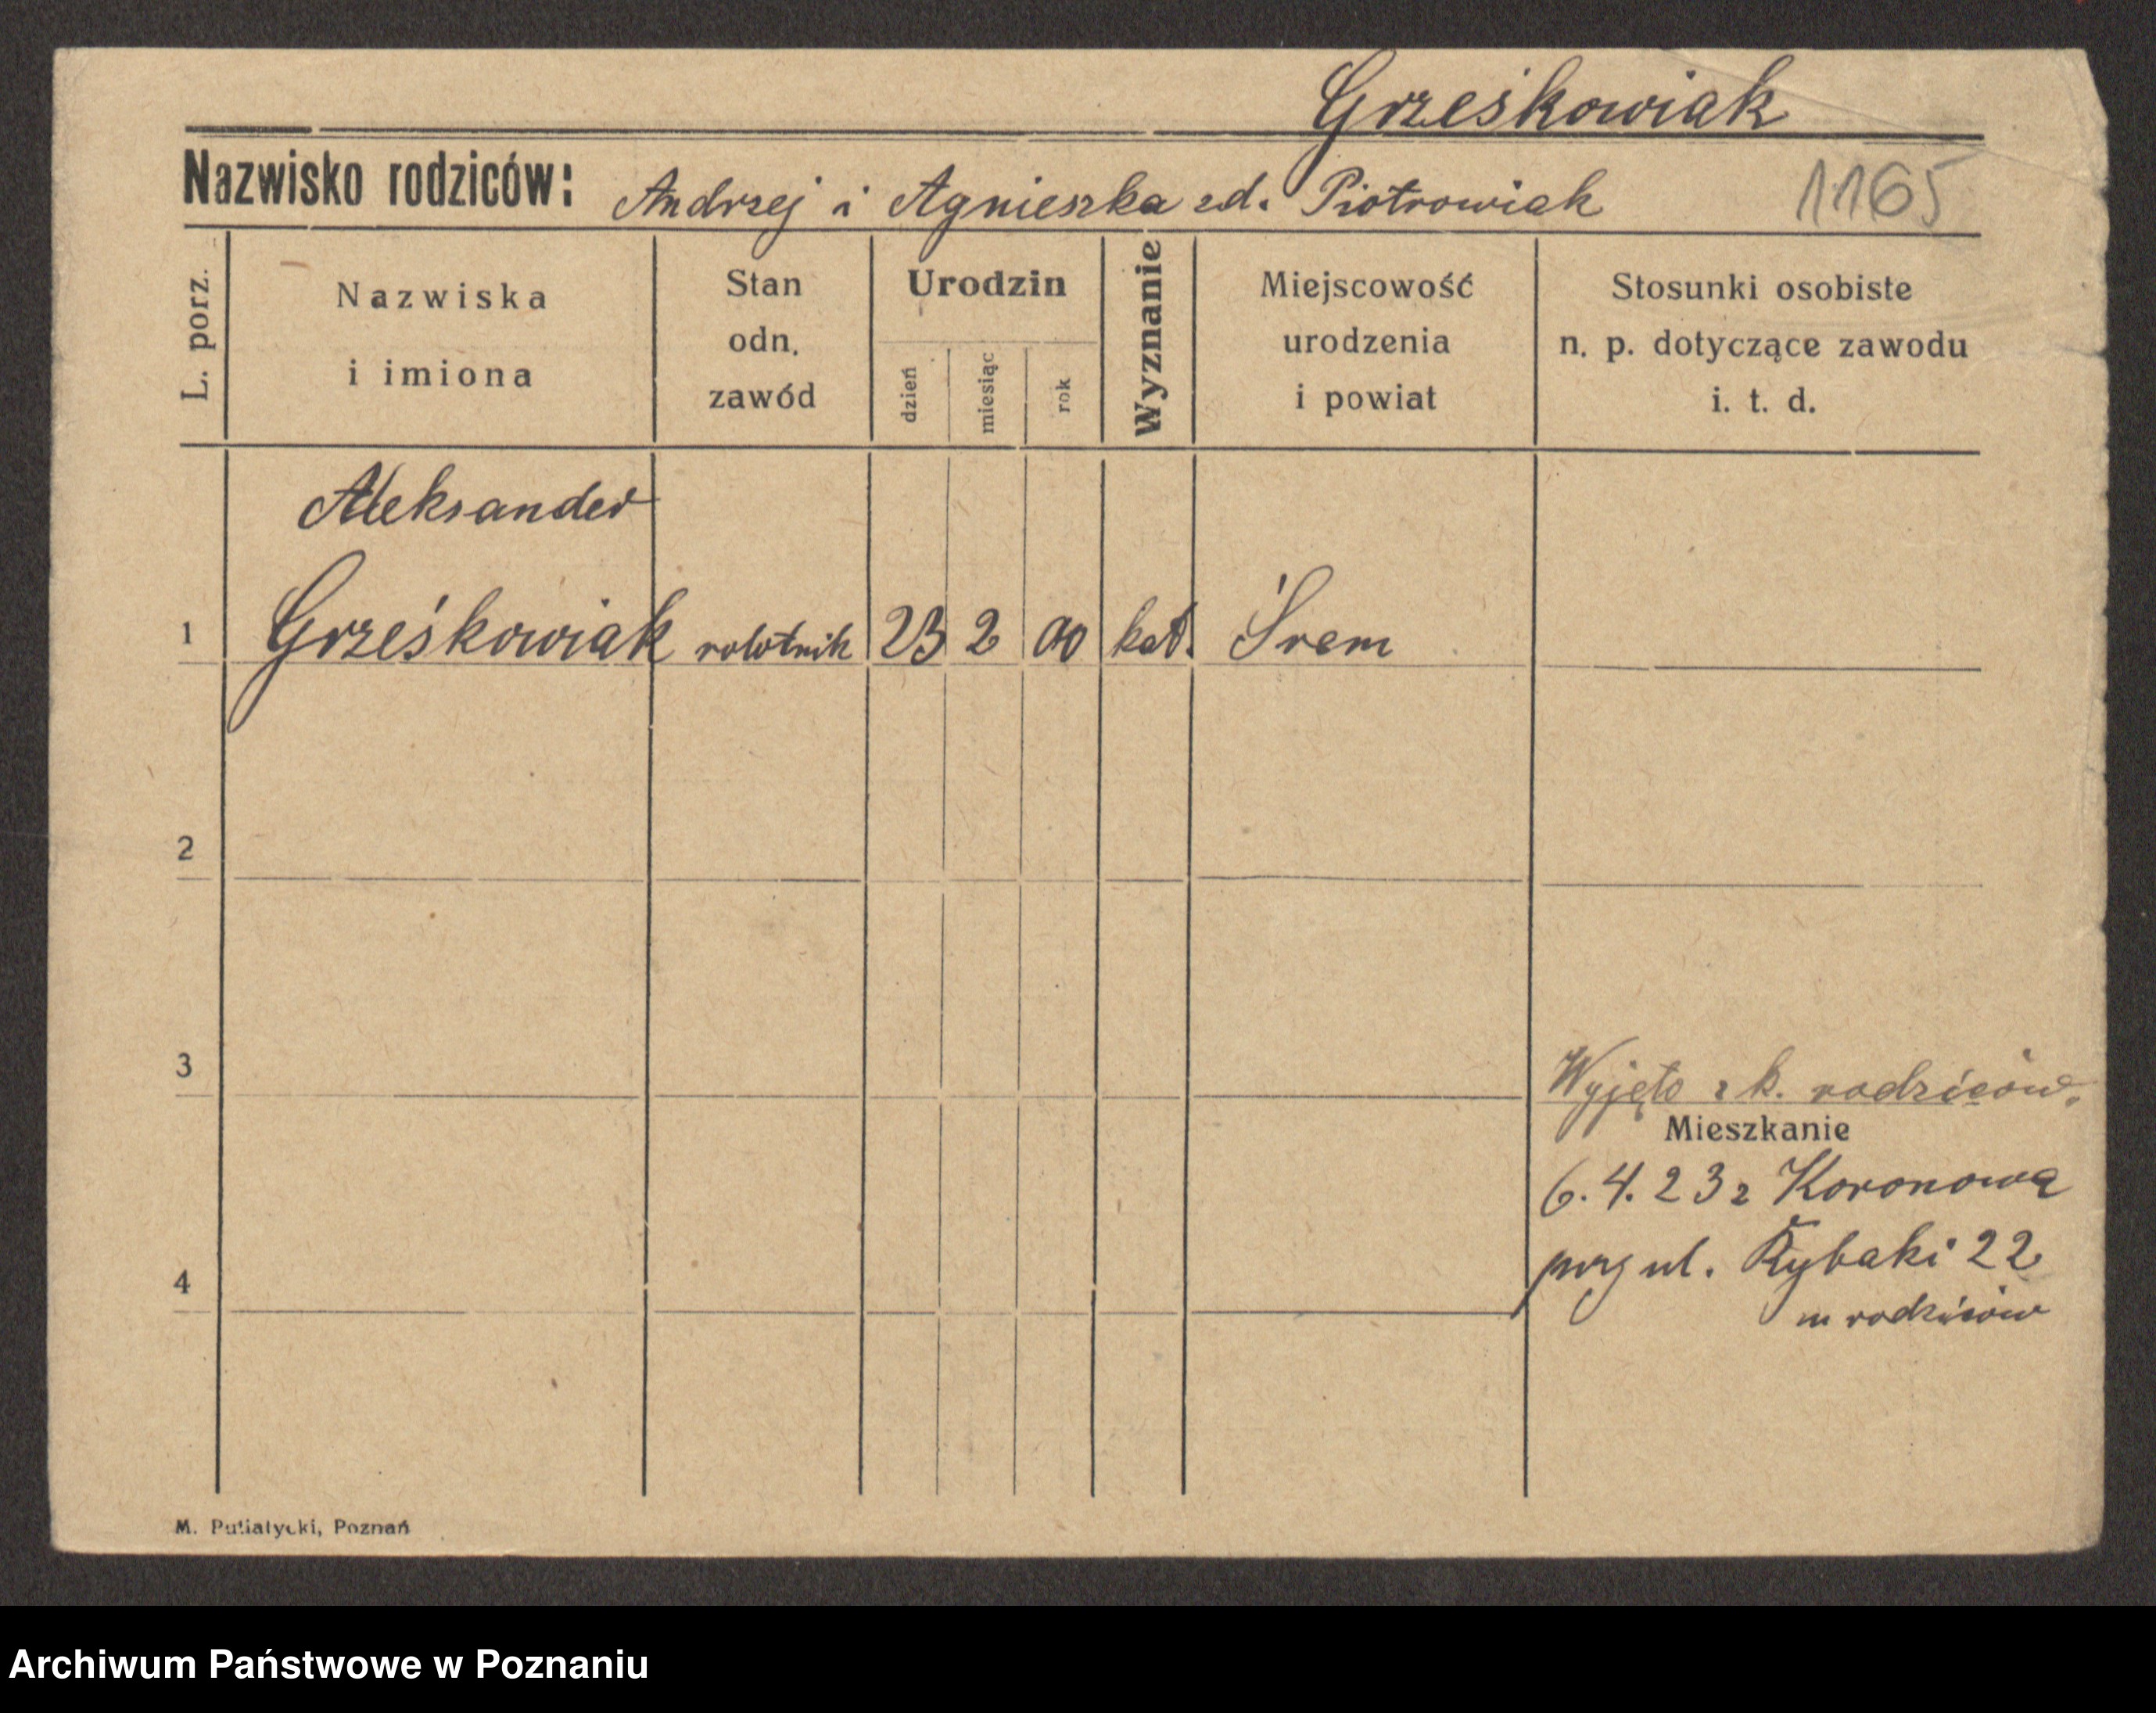 Grześkowiak
Nazwisko rodziców: Andrzej i Agnieszka zd. Piotrowiak 1165
L. porz.
Nazwiska
i imiona
Stan
odn.
zawód
Urodzin
dzień
miesiąc
rok
Wyznanie
Miejscowość
urodzenia
i powiat
Stosunki osobiste
n. p. dotyczące zawodu
i. t. d.
Aleksander
1 Grześkowiak robotnik 23 2 00 kat. Śrem
2
3
Wyjęto z k. rodziców.
Mieszkanie
6. 4. 23 z Koronowa
przy ul. Rybaki 22
4
u rodziców
M. Putiatycki, Poznań
Archiwum Państwowe w Poznaniu